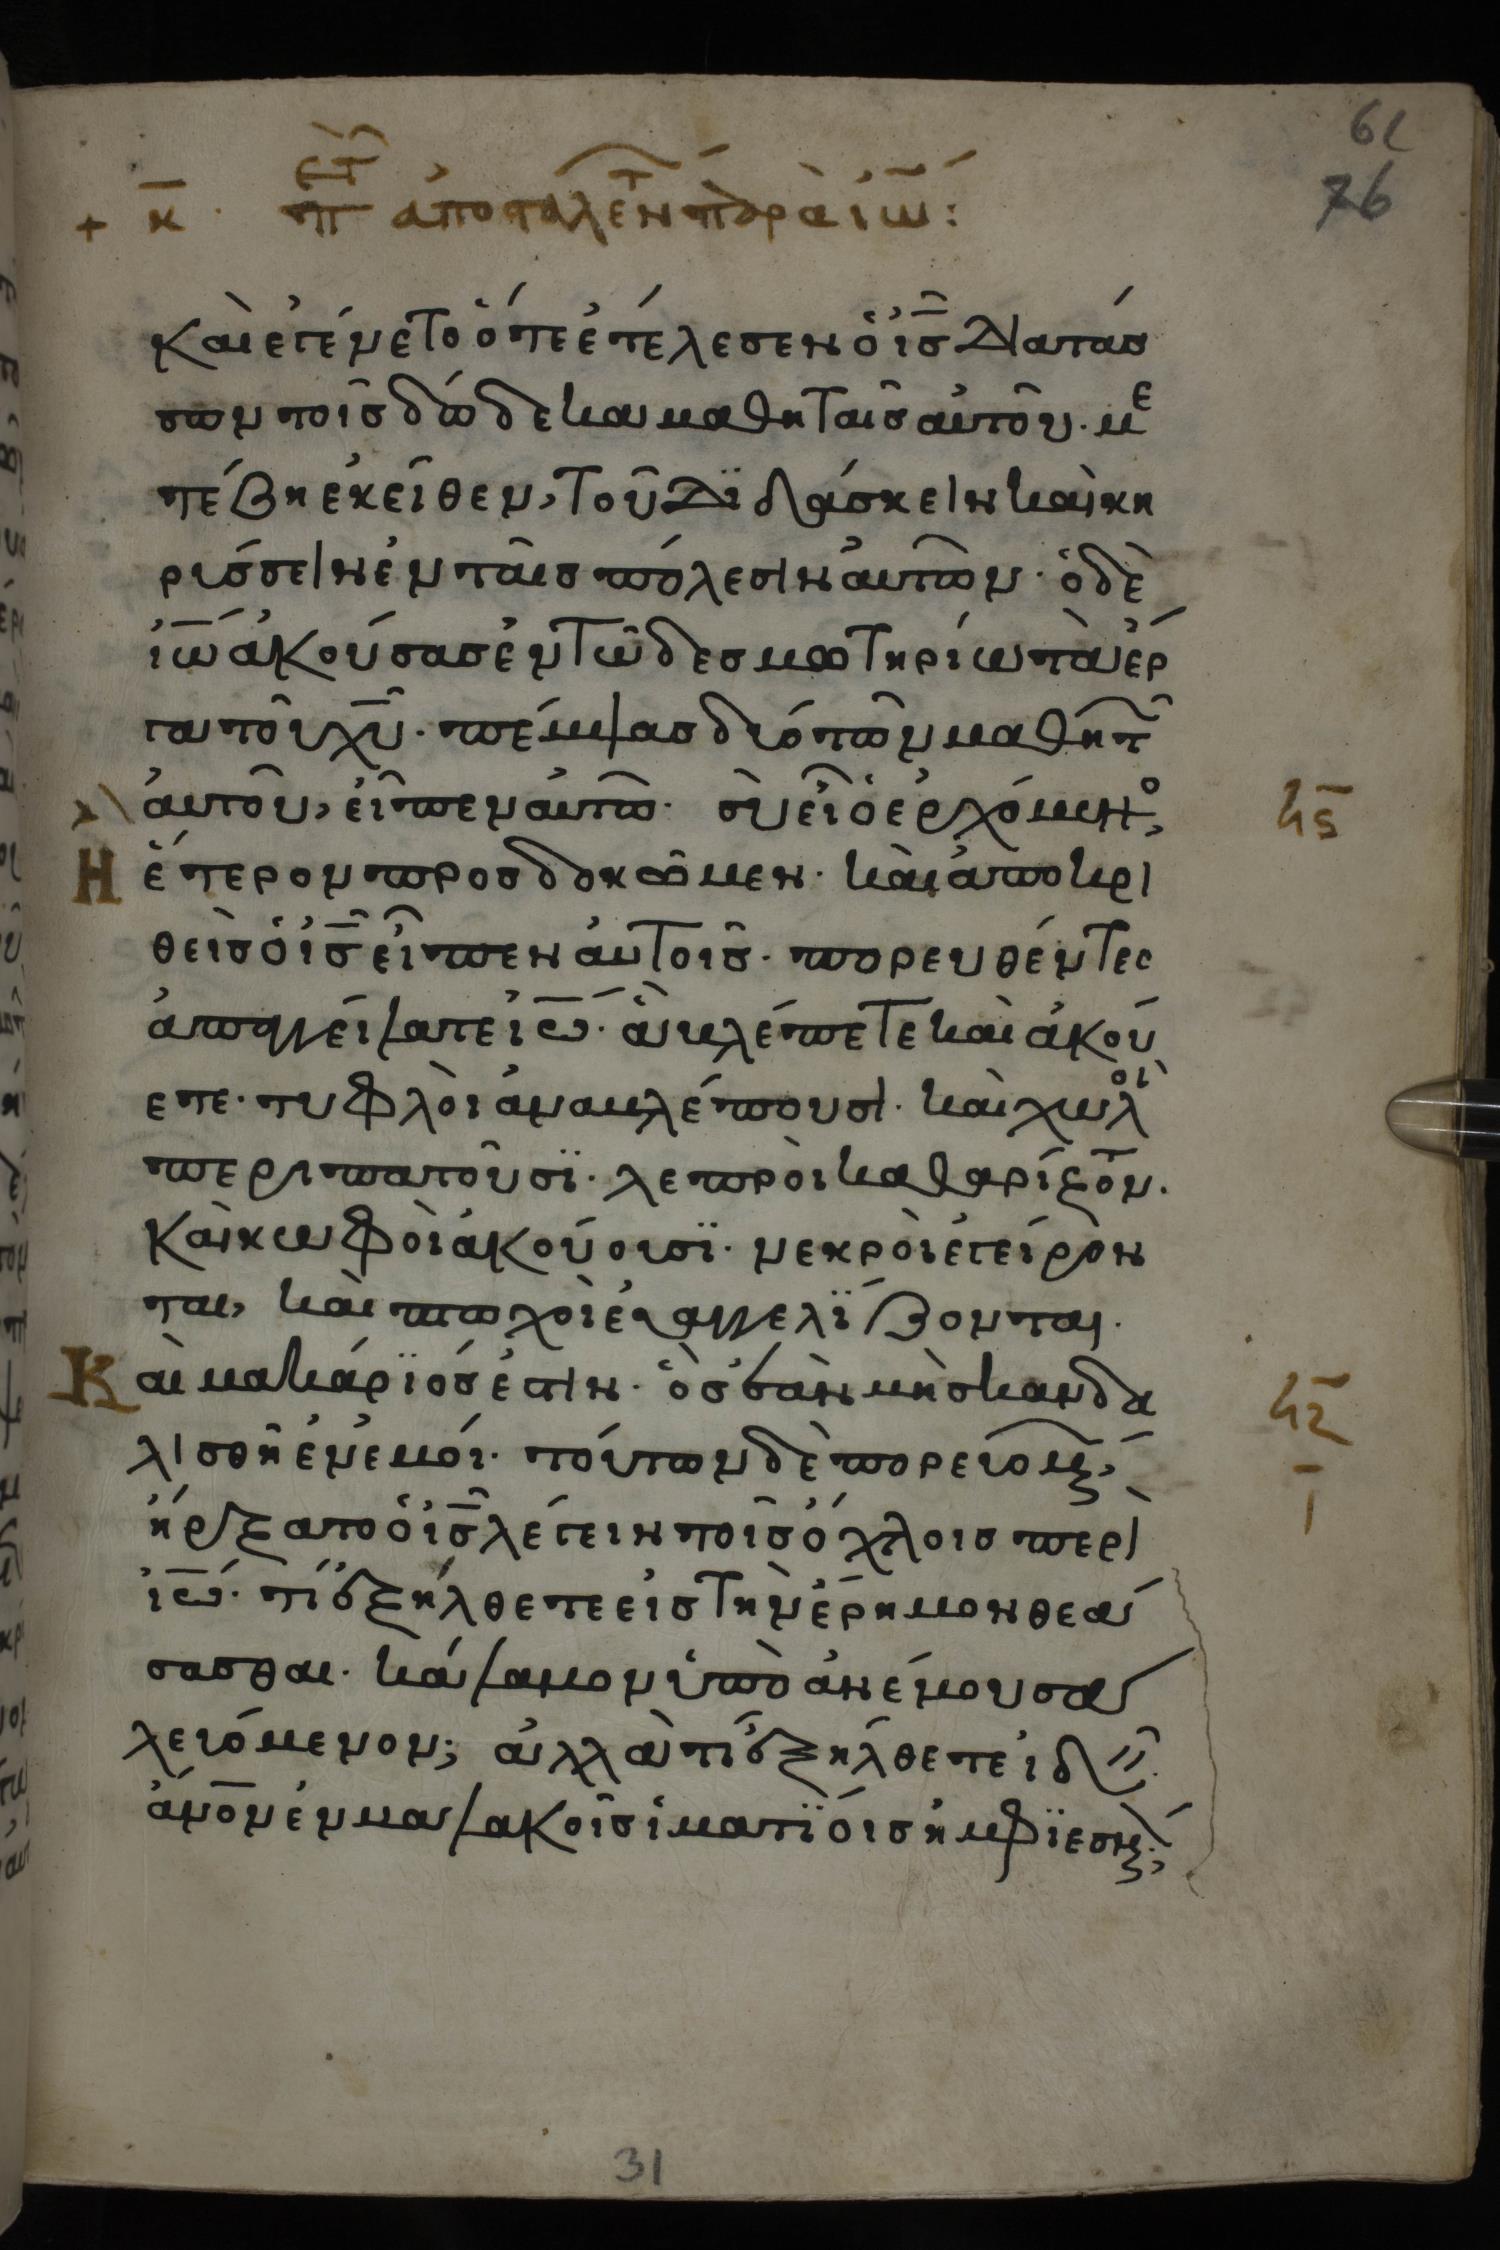 61
76
+ κ̅ · π̅ε̅ρ̅ι̅ τῶν ἀποσταλέντ παρὰ ἰω̅:
Καὶ ἐγένετο ὅτε ἐτέλεσεν ὁ ἰ̅σ̅ διατάσ
σων τοῖς δώδεκα μαθηταῖς αὐτοῦ· με
τέβη ἐκεῖθεν, τοῦ διδάσκειν καὶ κη
ρύσσειν ἐν ταῖς πόλεσιν αὐτῶν· ὁ δὲ
ἰω̅ ἀκούσας ἐν τῶ δεσμωτηρίω τὰ ἔρ
γα τοῦ χ̅υ̅· πέμψας δύο τῶν μαθητ
αὐτοῦ, εἶπεν αὐτῶ· σὺ εἶ ὁ ἐρχόμενο,
Η ἕτερον προσδοκῶμεν· καὶ ἀποκρι
θεὶς ὁ ἰ̅σ̅ εἶπεν αὐτοῖς· πορευθέντες
ἀπαγγείλατε ἰω̅· ἃ βλέπετε καὶ ἀκού
ετε· τυφλοὶ ἀναβλέπουσι· καὶ χωλοὶ
περιπατοῦσϊ· λεπροὶ καθαρίζον.
Καὶ κωφοὶ ἀκούουσϊ· νεκροὶ ἐγείρον
ται, καὶ πτωχοὶ εὐαγγελϊζονται·
Καὶ μακάρϊός ἐστιν· ὃς ἐὰν μὴ σκανδα
λισθῆ ἐν ἐμοί· τούτων δὲ πορευομ,
ἤρξατο ὁ ἰ̅σ̅ λέγειν τοῖς ὄχλοις περὶ
ἰω̅· τί ἐξήλθετε εἰς τὴν ἔρημον θεά
σασθαι· κάλαμον ὑπὸ ἀνέμου σα
λευόμενον; ἀλλὰ τί ἐξήλθετε ἰδεῖν·
ἄνον ἐν μαλακοῖς ἱματϊοις ἠμφϊεσμ;
31